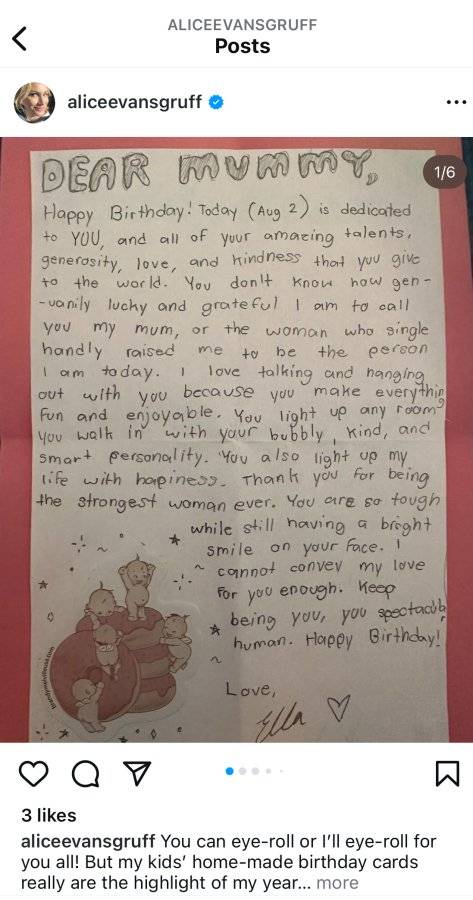 ALICEEVANSGRUFF
Posts
aliceevansgruff
1/6
DEAR MUMMY,
Happy Birthday! Today (Aug 2) is dedicated
to YOU, and all of your amazing talents,
generosity, love, and kindness that you give
to the world. You don't know how gen-
-uanily lucky and grateful I am to call
you my mum, or the woman who single
handly raised me to be the person
I am today. I love talking and hanging
out with you because you make everythin
fun and enjoyable. You light up any room
you walk in with your bubbly, kind, and
smart personality. You also light up my
life with happiness. Thank you for being
the strongest woman ever. You are so tough
while still having a bright
smile on your face. I
cannot convey my love
for you enough. Keep
being you, you spectacular
human. Happy Birthday!
Love,
Ella
3 likes
aliceevansgruff You can eye-roll or I'll eye-roll for
you all! But my kids' home-made birthday cards
really are the highlight of my year... more